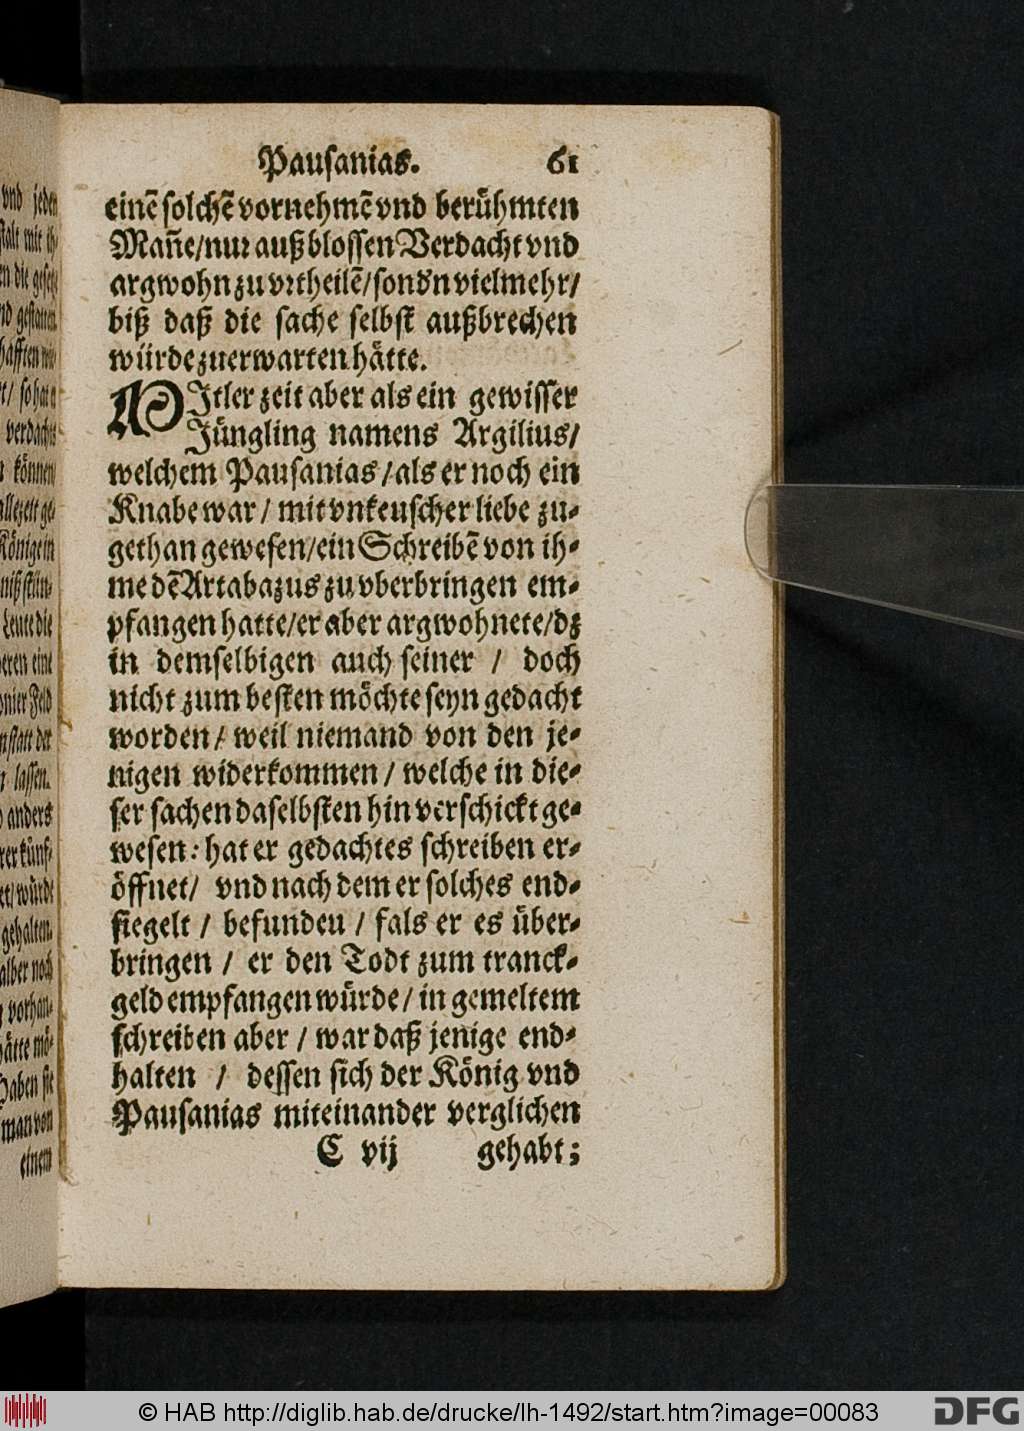 Pausanias. 61
einē solchē vornehmē vnd berühmten
Mañe/nur auß blossen Verdacht vnd
argwohn zu vrtheilē/sondn vielmehr/
biß daß die sache selbst außbrechen
würde zuerwarten hätte.
MItler zeit aber als ein gewisser
Jüngling namens Argilius/
welchem Pausanias/als er noch ein
Knabe war/ mit vnkeuscher liebe zu-
gethan gewesen/ein Schreibē von ih-
me dē Artabazus zu vberbringen em-
pfangen hatte/er aber argwohnete/dz
in demselbigen auch seiner / doch
nicht zum besten möchte seyn gedacht
worden/ weil niemand von den je-
nigen widerkommen/ welche in die-
ser sachen daselbsten hin verschickt ge-
wesen: hat er gedachtes schreiben er-
öffnet/ vnd nach dem er solches end-
siegelt / befunden / fals er es über-
bringen / er den Todt zum tranck-
geld empfangen würde/ in gemeltem
schreiben aber / war daß jenige end-
halten / dessen sich der König vnd
Pausanias miteinander verglichen
C vij gehabt;
vnd jeden
verdacht
können
Königein
Leute die
eren eine
onier Feld
lassen.
anders
gehalten.
alber noch
vorhan-
ätte mö-
haben sie
man von
einem
© HAB http://diglib.hab.de/drucke/lh-1492/start.htm?image=00083
DFG